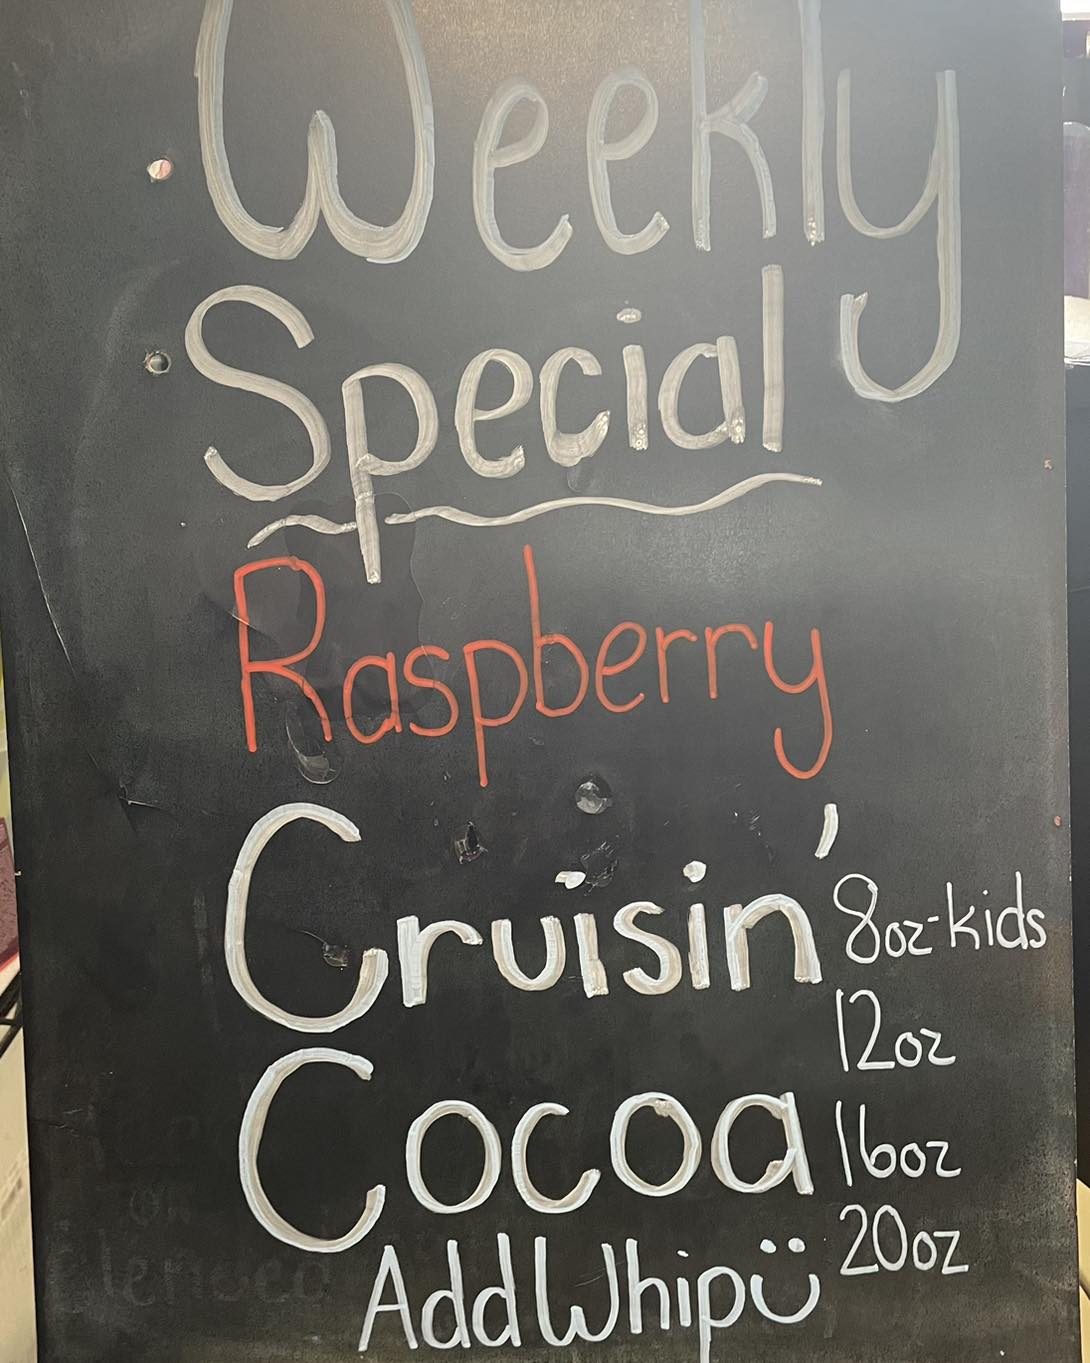 Weekly
Special
Raspberry
Cruisin'
8oz-kids
12oz
Cocoa
16oz
20oz
Add Whip ü